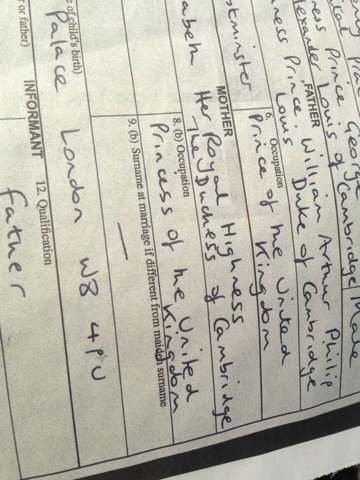 Male
Prince George
ness Prince Louis of Cambridge
lexander
FATHER
ness Prince William Arthur Philip
Louis Duke of Cambridge
6. Occupation
Prince of the United
Kingdom
tminster
MOTHER
Her Royal Highness
abeth The Duchess of Cambridge
8. (b) Occupation
Princess of the United
Kingdom
9. (b) Surname at marriage if different from maiden surname
—
e of child's birth)
Palace London W8 4PU
INFORMANT
or father)
12. Qualification
Father